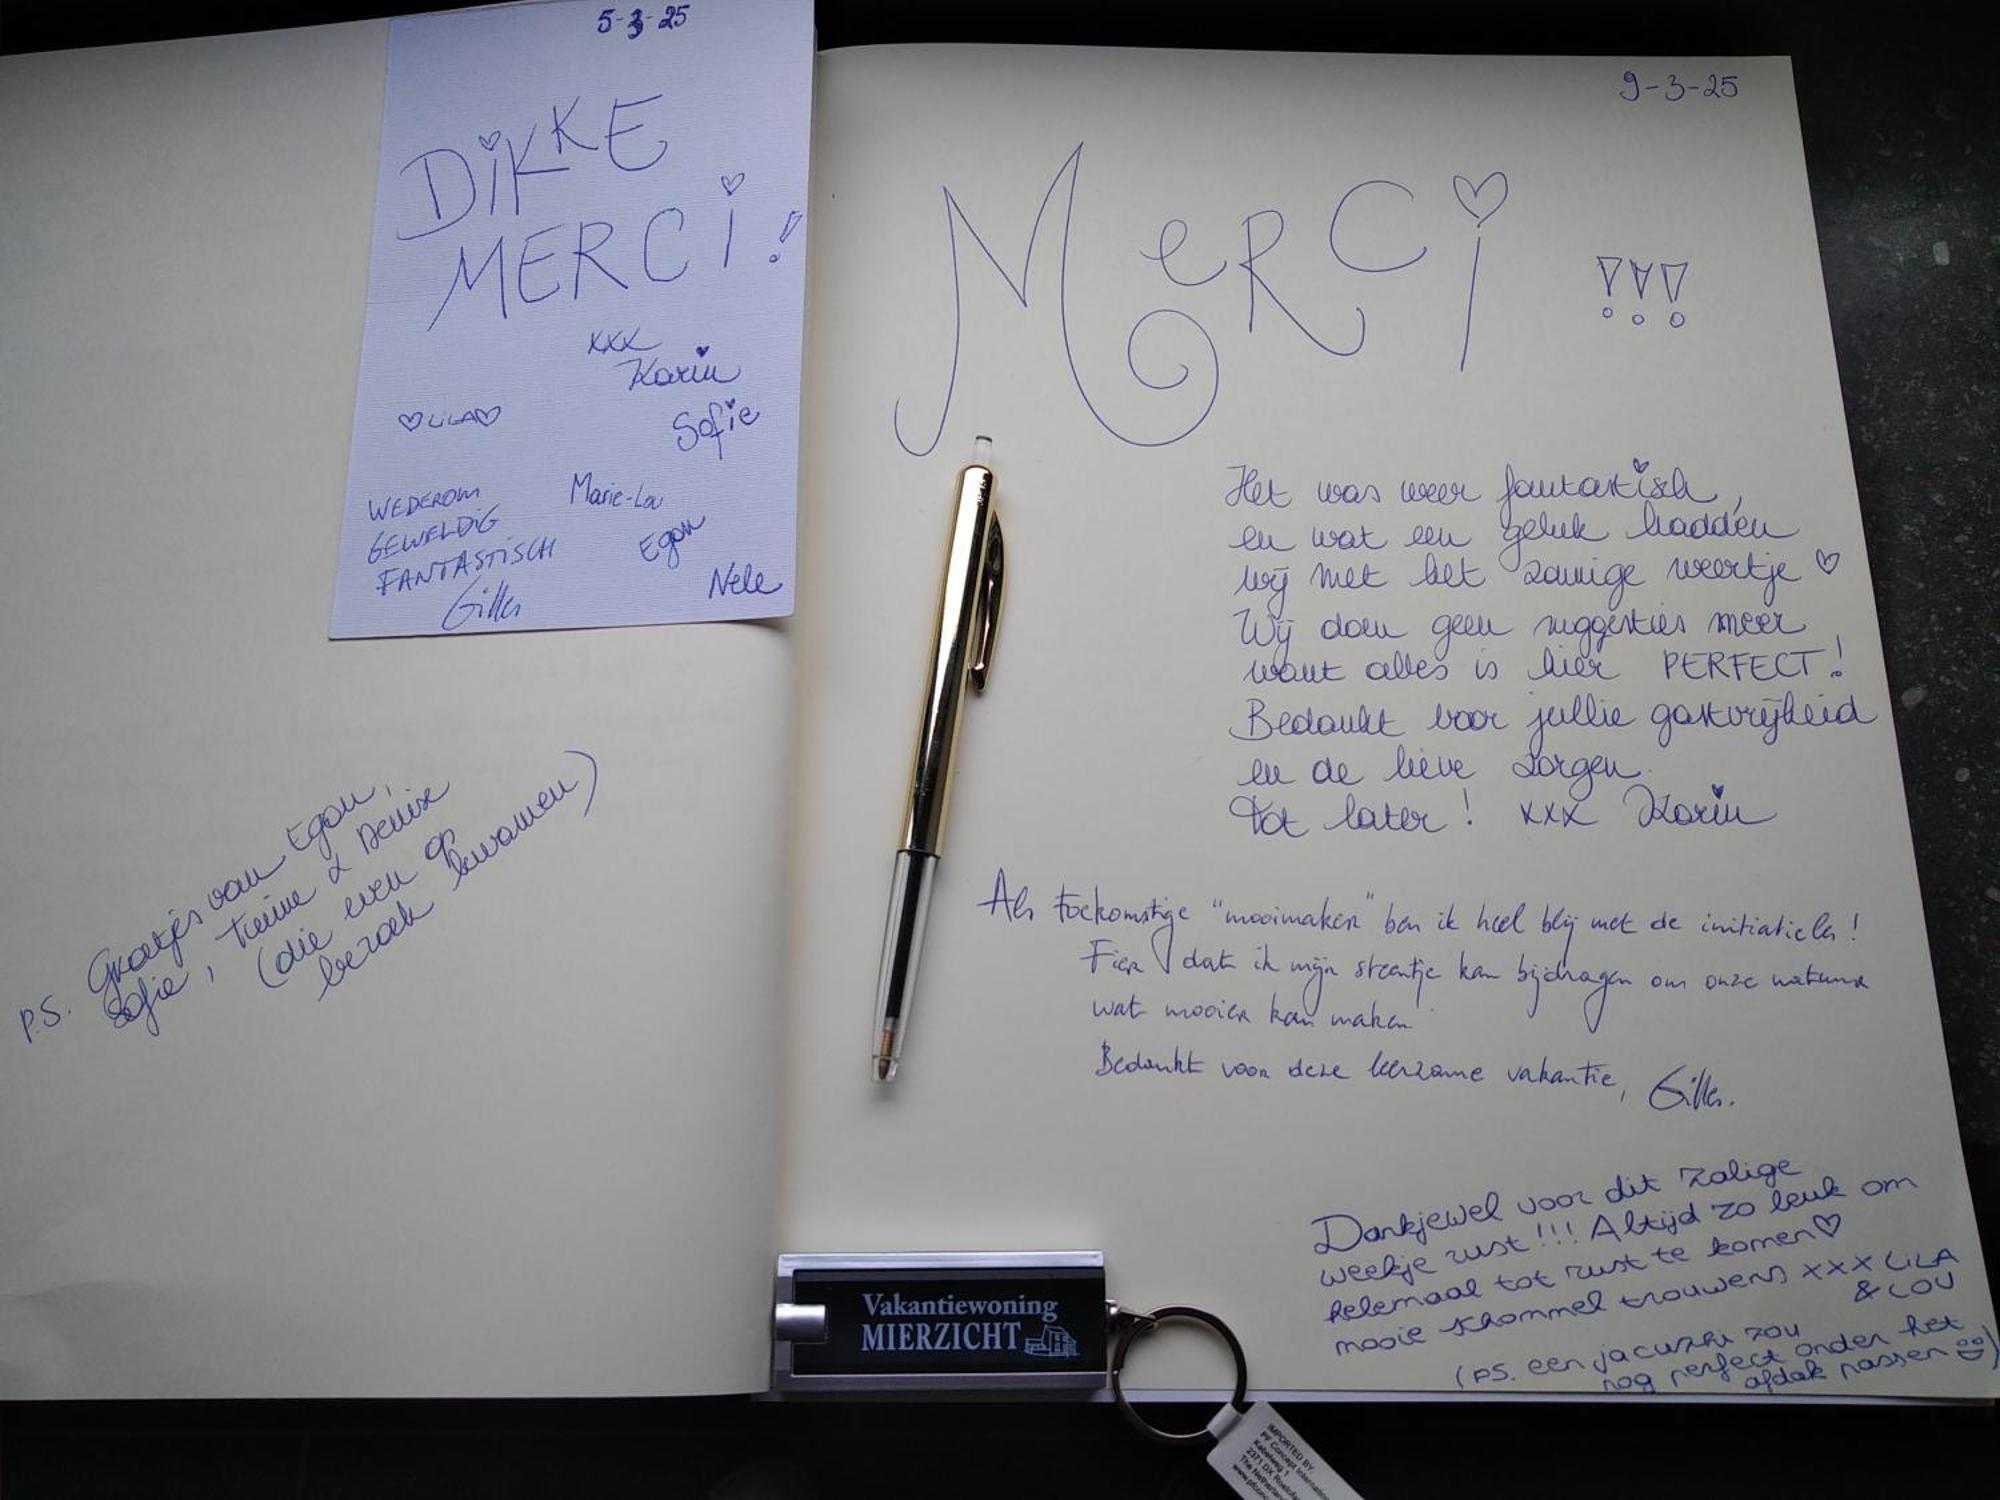 5-3-25
DIKKE
MERCI!
xxx
Karin
♡LiLA♡
Sofie
WEDEROM
GEWELDIG
FANTASTISCH
Gilles
Marie-Lou
Egon
Nele
P.S. Groetjes van Egon,
Sofie, Tuline & Denise
(die even op
bezoek kwamen)
9-3-25
MeRCi !!!
Het was weer fantastisch,
en wat een geluk hadden
wij met het zonnige weertje ♡
Wij doen geen suggesties meer
want alles is hier PERFECT!
Bedankt voor jullie gastvrijheid
en de lieve zorgen.
Tot later! xxx Karin
Als toekomstige "mooimaker" ben ik heel blij met de initiatieles!
Fier dat ik mijn steentje kan bijdragen om onze natuur
wat mooier kan maken.
Bedankt voor deze leerzame vakantie, Gilles.
Dankjewel voor dit zalige
weekje rust!!! Altijd zo leuk om
helemaal tot rust te komen♡
mooie schommel trouwens xxx LiLA
& LOU
(PS. een jacuzzi zou
nog perfect onder het
afdak passen)
Vakantiewoning
MIERZICHT
IMPORTED BY:
PF Concept International
Kabelweg 1
2371 DX
The Netherlands